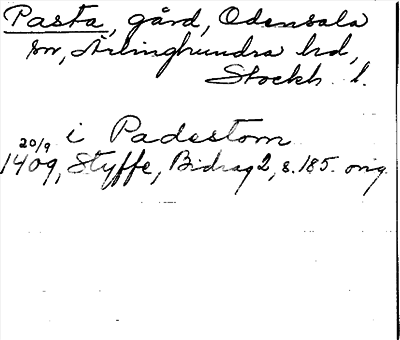 Pasta, gård, Odensala
sn, Ärlinghundra hd,
Stockh. l.
i Padestom
20/9 1409, Styffe, Bidrag 2, s. 185. orig.